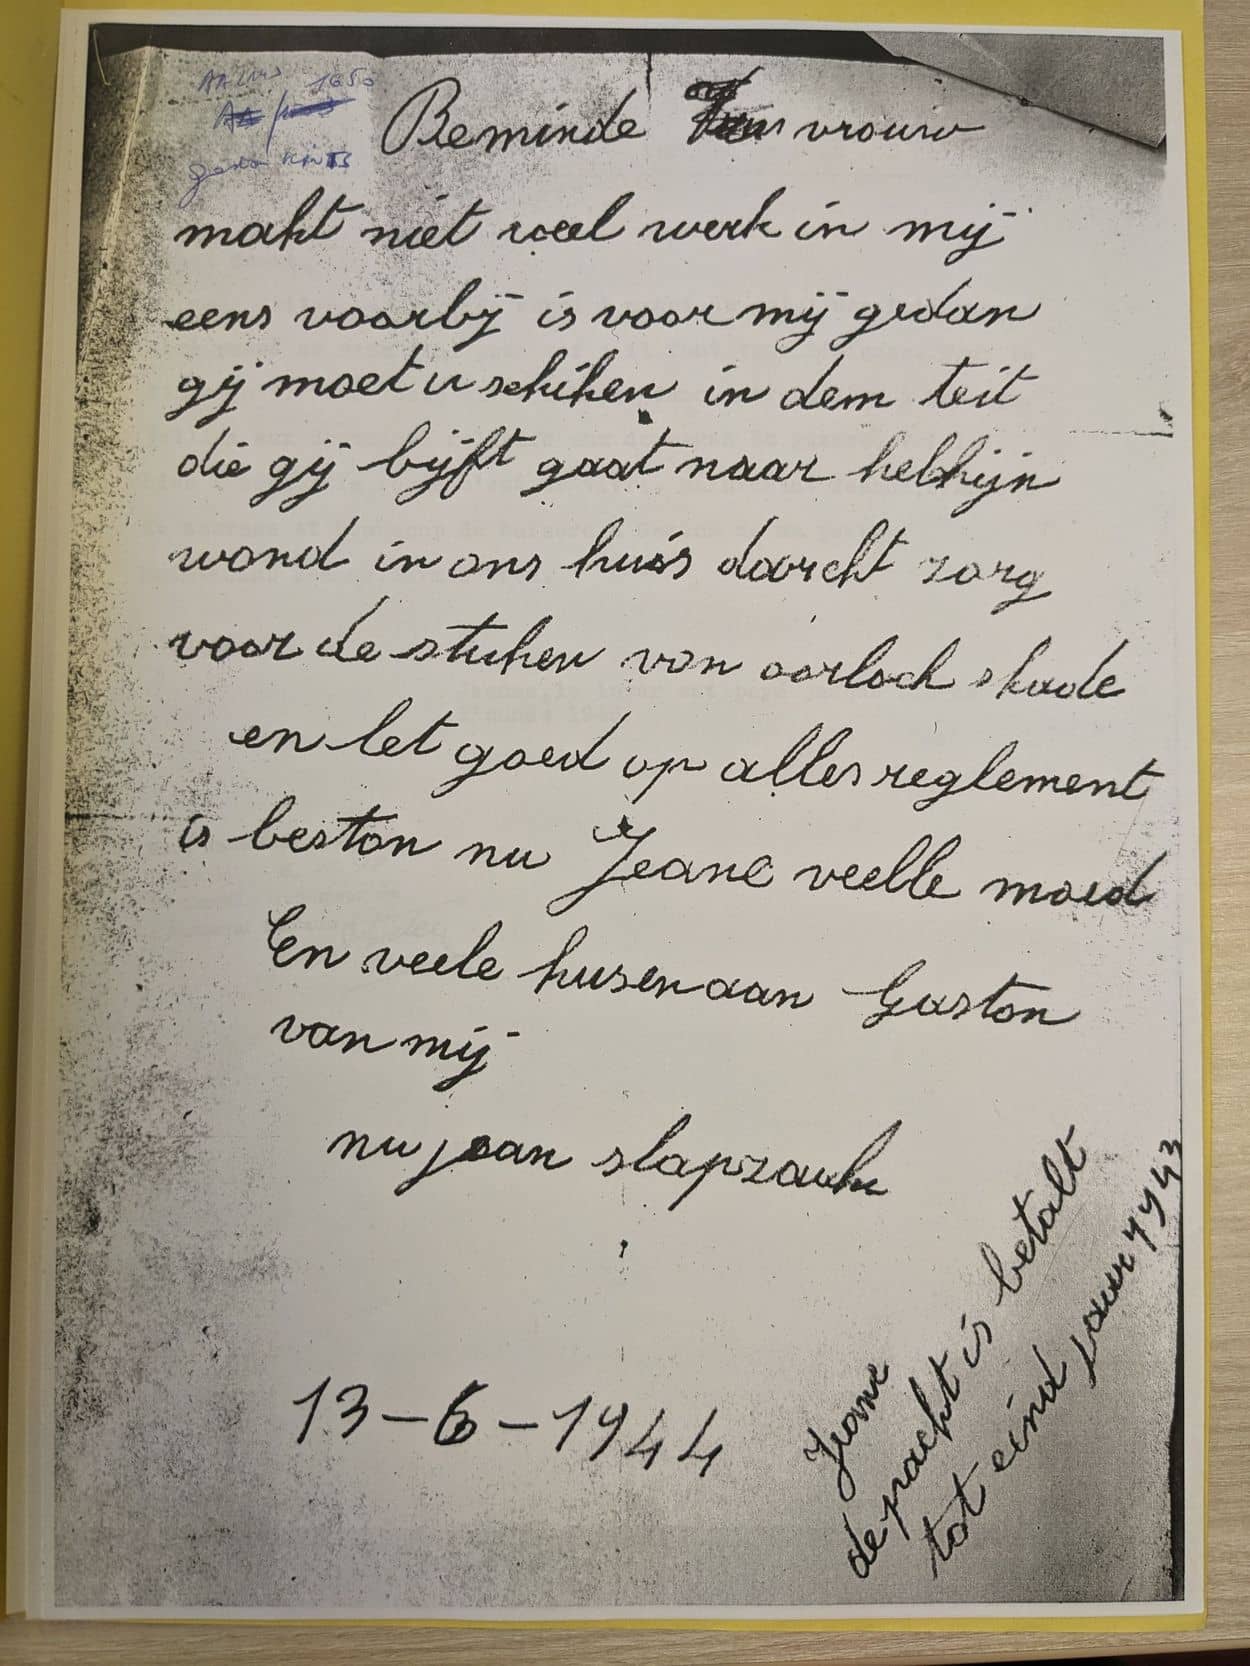 1650
Beminde vrouw
makt niet veel werk in mij
eens voorbij is voor mij gedan
gij moet u schiken in dem teit
die gij bijft gaat naar helkijn
wond in ons huis dorecht zorg
voor de stuken van oorloch skade
en let goed op alles reglement
is beston nu Jeane veelle moed
En veele kusen aan Gaston
van mij
nu joan slapzauk
13-6-1944
Jeane
de pracht is betalt
tot eind jaar 1943